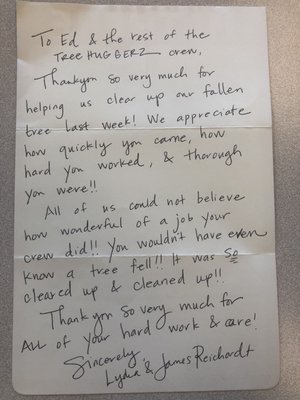 To Ed & the rest of the
TREE HUGGERZ crew,
Thankyou so very much for
helping us clear up our fallen
tree last week! We appreciate
how quickly you came, how
hard you worked, & thorough
you were!!
All of us could not believe
how wonderful of a job your
crew did!! You wouldn't have even
know a tree fell!! It was so
cleared up & cleaned up!!
Thank you so very much for
ALL of your hard work & care!
Sincerely,
Lydia & James Reichardt